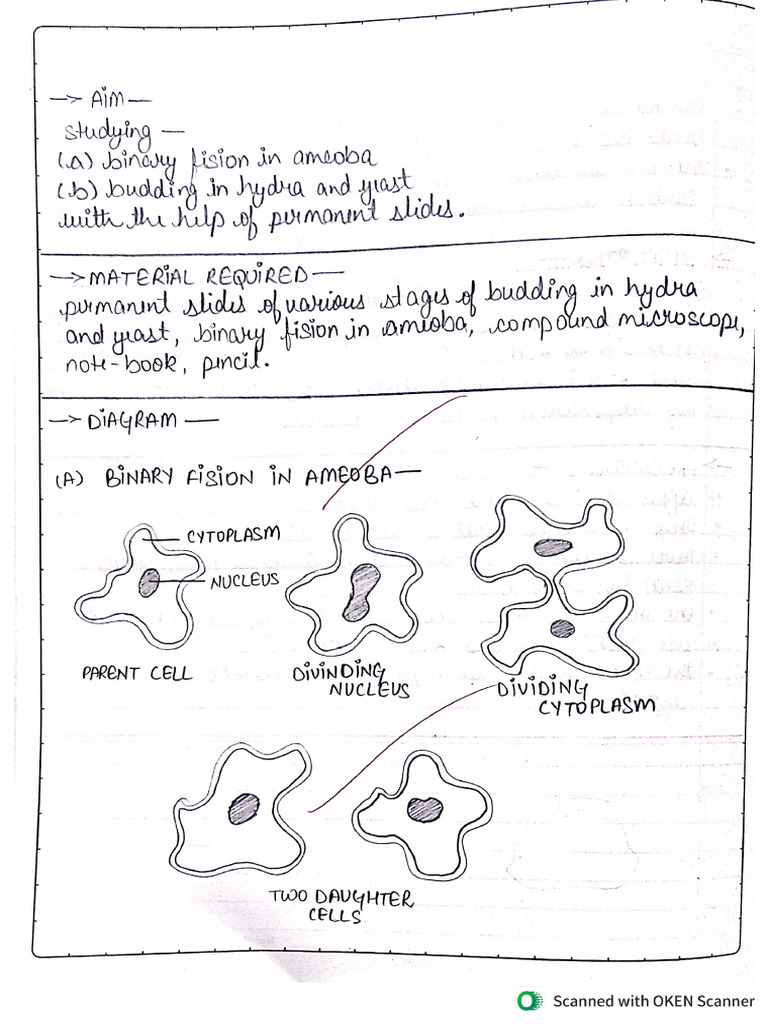 → AIM —
Studying —
(a) binary fision in ameoba
(b) budding in hydra and yeast
with the help of permanent slides.
→ MATERIAL REQUIRED —
permanent slides of various stages of budding in hydra
and yeast, binary fision in ameoba, compound microscope,
note-book, pencil.
→ DIAGRAM —
(A) BINARY FISION IN AMEOBA —
CYTOPLASM
NUCLEUS
PARENT CELL
DIVINDING
NUCLEUS
DIVIDING
CYTOPLASM
TWO DAUGHTER
CELLS
Scanned with OKEN Scanner